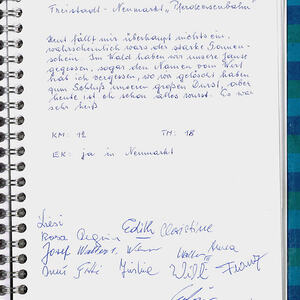 Freistadt - Neumarkt „Pferdeeisenbahn"
Heut fällt mir überhaupt nichts ein,
wahrscheinlich wars der starke Sonnen-
schein. Im Wald haben wir unsere Jause
gegessen, sogar den Namen vom Wirt
hab ich vergessen, wo wir gelöscht haben
zum Schluß unseren großen Durst, aber
heute ist eh schon alles wurst. Es war
sehr heiß
KM: 12 TN: 18
EK: ja in Neumarkt
Liesi
Rosa Regina Edith Christine
Josef Walter
Willi Franz